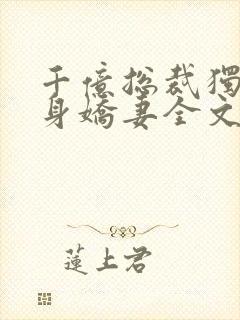 千億总裁獨
身嬌妻全文
蓮上君